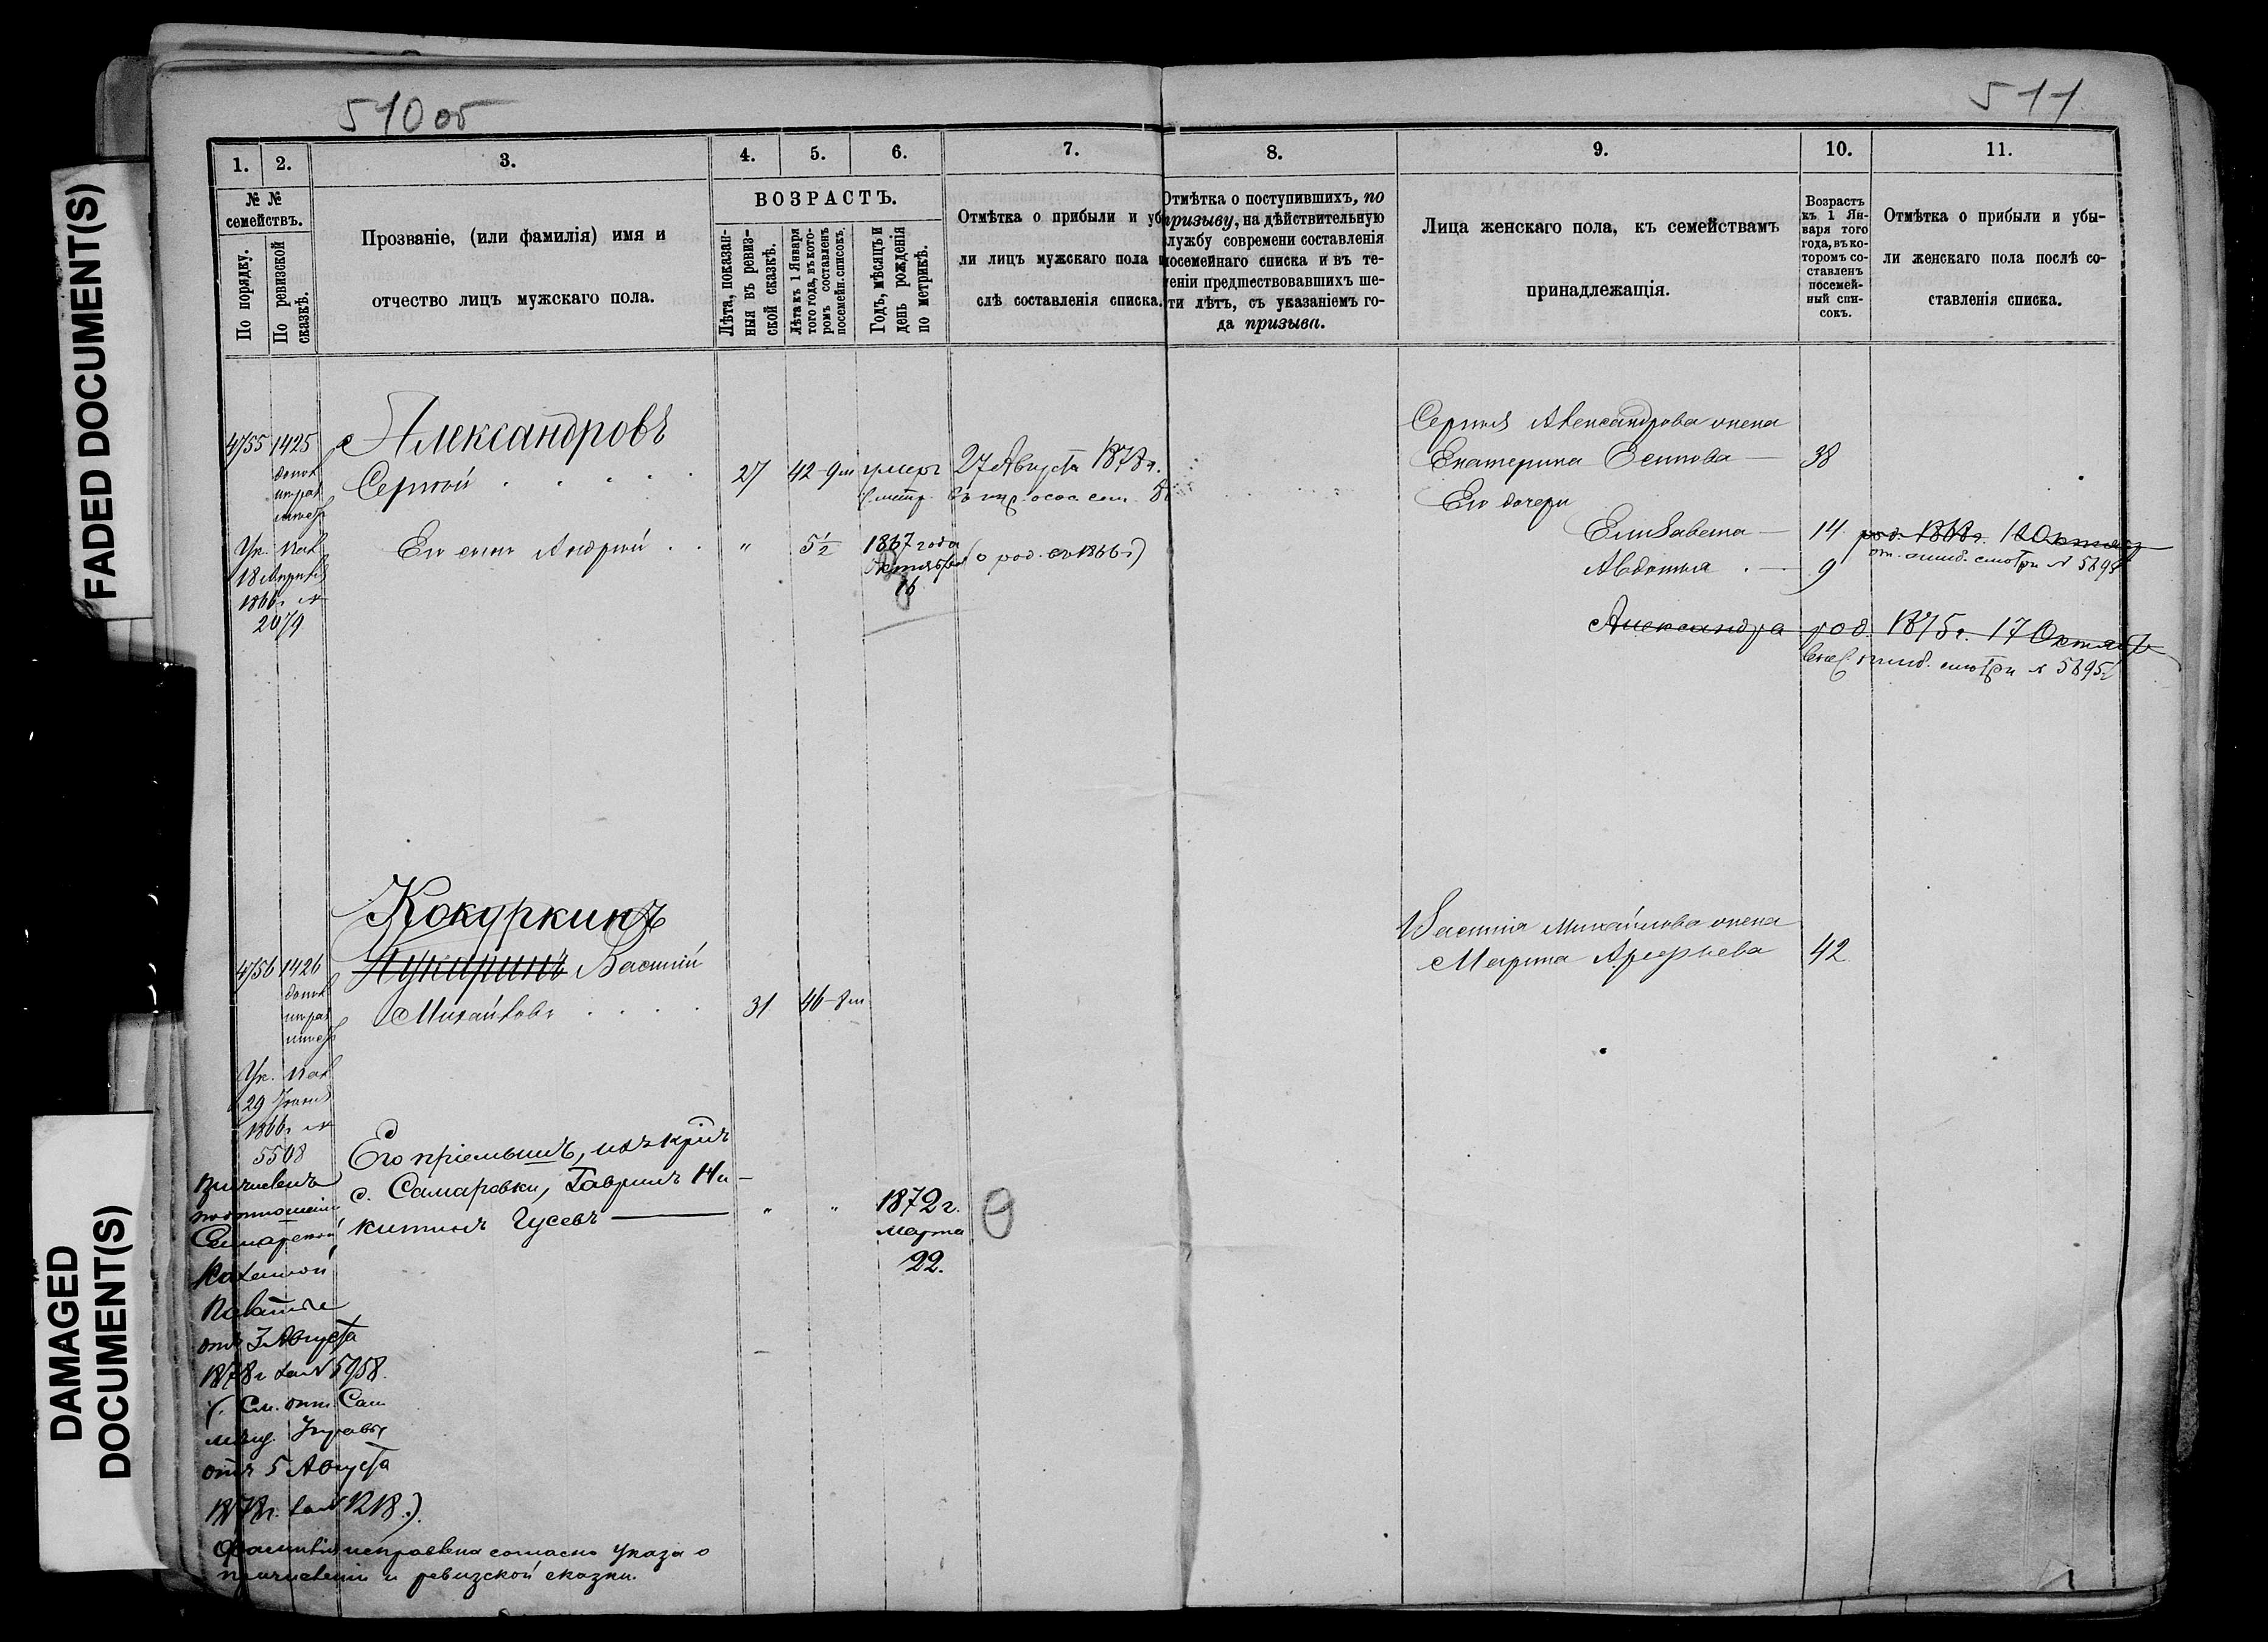 FADED DOCUMENT(S)
DAMAGED
DOCUMENT(S)
510 об
511
1. 2. 3. 4. 5. 6. 7. 8. 9. 10. 11.
№ №
семействъ.
По порядку.
По ревизской
сказкѣ.
Прозваніе, (или фамилія) имя и
отчество лицъ мужскаго пола.
ВОЗРАСТЪ.
Лѣта, показан-
ныя въ ревиз-
ской сказкѣ.
Лѣта къ 1 Января
того года, въ кото-
ромъ составленъ
посемейн. списокъ.
Годъ, мѣсяцъ и
день рожденія
по метрикѣ.
Отмѣтка о прибыли и уб
ли лицъ мужскаго пола п
слѣ составленія списка.
Отмѣтка о поступившихъ, по
призыву, на дѣйствительную
службу современи составленія
посемейнаго списка и въ те-
ченіи предшествовавшихъ ше-
ти лѣтъ, съ указаніемъ го-
да призыва.
Лица женскаго пола, къ семействамъ
принадлежащія.
Возрастъ
къ 1 Ян-
варя того
года, въ ко-
торомъ со-
ставленъ
посемей-
ный спи-
сокъ.
Отмѣтка о прибыли и убы-
ли женскаго пола послѣ со-
ставленія списка.
4755 1425
Александровъ
Сергѣй 27 42-9м умеръ 27 Августа 1878 г.
Его сынъ Андрей " 5½ 1867 года
Октября (о род. въ 1866 г)
16
Ук. Пал.
18 Апрѣля
1866 г №
2079
Сергѣя Александрова жена
Екатерина Осипова — 38
Его дочери
Елизавета — 14 род. 1868 г.
от. ошиб. смотри № 5895
Авдотья — 9
Александра род. 1875 г. 17 Октяб
ошиб. смотри № 5895
Кокуркинъ
4756 1426
Василій
Михайловъ 31 46-8м
Василія Михайлова жена
Марина Арефьева 42
Ук. Пал.
29
1866 г №
5508
Его пріемышъ, изъ кр
с. Самаровки, Гаврилъ Ни-
китинъ Гусевъ — " " 1872 г.
Марта
22.
Причисленъ
по отношенію
Самарской
Казенной
Палаты
отъ 3 Августа
1878 г за № 5958.
(См. отн. Сам.
мѣщ. Управы
отъ 5 Августа
1878 г. за № 1218.)
Фамилія исправлена согласно указа о
причисленіи и ревизской сказки.